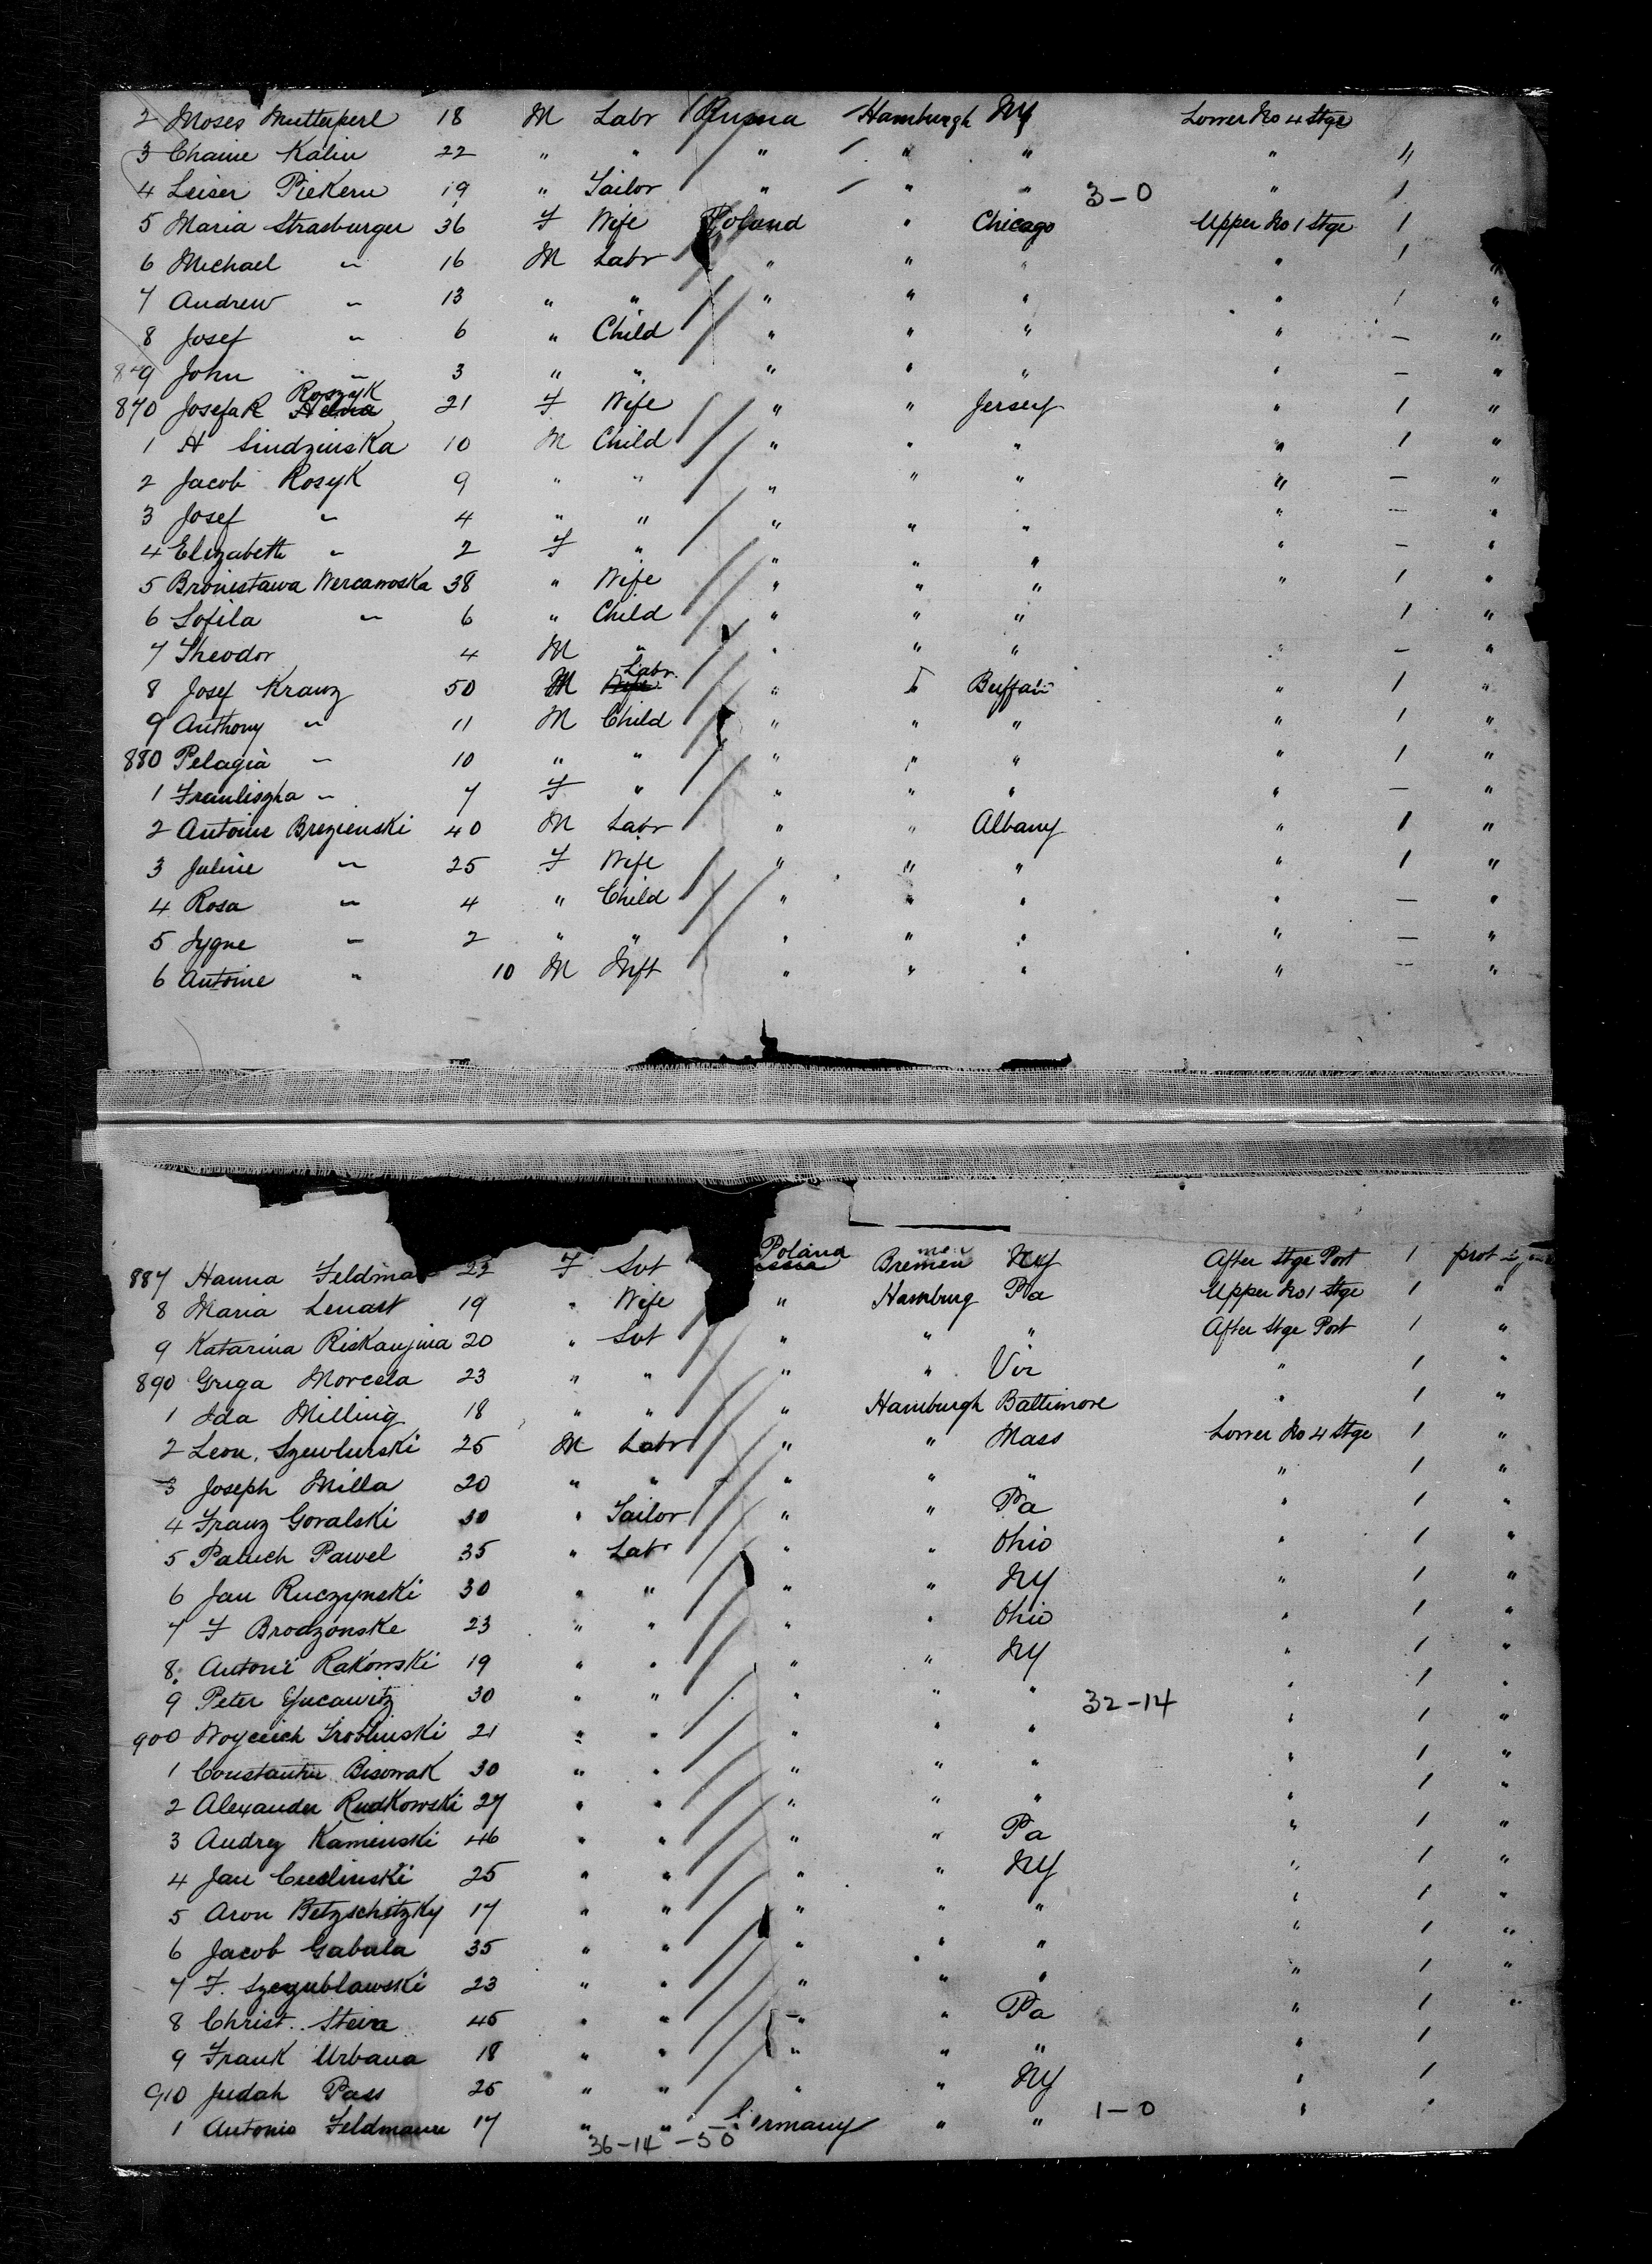 2 Moses Mutterperl 18 M Labr Russia Hamburgh NY Lower No 4 Stge
3 Chaine Kalin 22 " " " " " " "
4 Leiser Piekern 19 " Tailor " " " 3-0 " 1
5 Maria Strasburger 36 F Wife Poland " Chicago Upper No 1 Stge 1
6 Michael " 16 M Labr " " " " 1 "
7 Andrew " 13 " " " " " " 1 "
8 Josef " 6 " Child " " " " — "
869 John " 3 " " " " " " — "
870 Josefa R Roszyk 21 F Wife " " Jersey " 1 "
1 H Sindzinska 10 M Child " " " " 1 "
2 Jacob Rosyk 9 " " " " " " — "
3 Josef " 4 " " " " " " — "
4 Elizabeth " 2 F " " " " " — "
5 Bronistawa Wercamoska 38 " Wife " " " " 1 "
6 Sofila " 6 " Child " " " 1 "
7 Theodor 4 M " " " " " — "
8 Josef Kranz 50 M Labr " " Buffalo " 1 "
9 Anthony " 11 M Child " " " " 1 "
880 Pelagia " 10 " " " " " " 1 "
1 Franliszka " 7 F " " " " " — "
2 Antoine Brezienski 40 M Labr " " Albany " 1 "
3 Juline " 25 F Wife " " " " 1 "
4 Rosa " 4 " Child " " " " — "
5 Jygne " 2 " " " " " " — "
6 Antoine " 10 M Inft " " " " — "
887 Hanna Feldma 22 F Svt Poland Bremen NY After Stge Port 1 prot
8 Maria Lenart 19 " Wife " Hamburg Pa Upper No 1 Stge 1 "
9 Katarina Riskaujina 20 " Svt " " " After Stge Port 1 "
890 Griga Morcela 23 " " " " Vir " 1 "
1 Ida Milling 18 " " " Hamburgh Baltimore " 1 "
2 Leon. Szewlurski 25 M Labr " " Mass Lower No 4 Stge 1 "
3 Joseph Milla 20 " " " " " " 1 "
4 Franz Goralski 30 " Tailor " " Pa " 1 "
5 Paluch Pawel 35 " Labr " " Ohio " 1 "
6 Jan Ruczynski 30 " " " " NY " 1 "
7 F Brodzonske 23 " " " " Ohio " 1 "
8. Antoni Rakowski 19 " " " " NY " 1 "
9 Peter Yucawitz 30 " " " " " 32-14 " 1 "
900 Woyceich Troslinski 21 " " " " " " 1 "
1 Constantin Bisowak 30 " " " " " " 1 "
2 Alexander Rudkowski 27 " " " " " " 1 "
3 Andrey Kaminski 46 " " " " Pa " 1 "
4 Jan Cudlinski 25 " " " " NY " 1 "
5 Aron Betzschitzky 17 " " " " " " 1 "
6 Jacob Gabala 35 " " " " " " 1 "
7 F. Szegublawski 23 " " " " " " 1 "
8 Christ. Steira 45 " " " " Pa " 1 "
9 Frank Urbana 18 " " " " " " 1
910 Judah Pass 25 " " " " NY " 1
1 Antonio Feldmann 17 " " Germany " " 1-0 " "
36-14-50